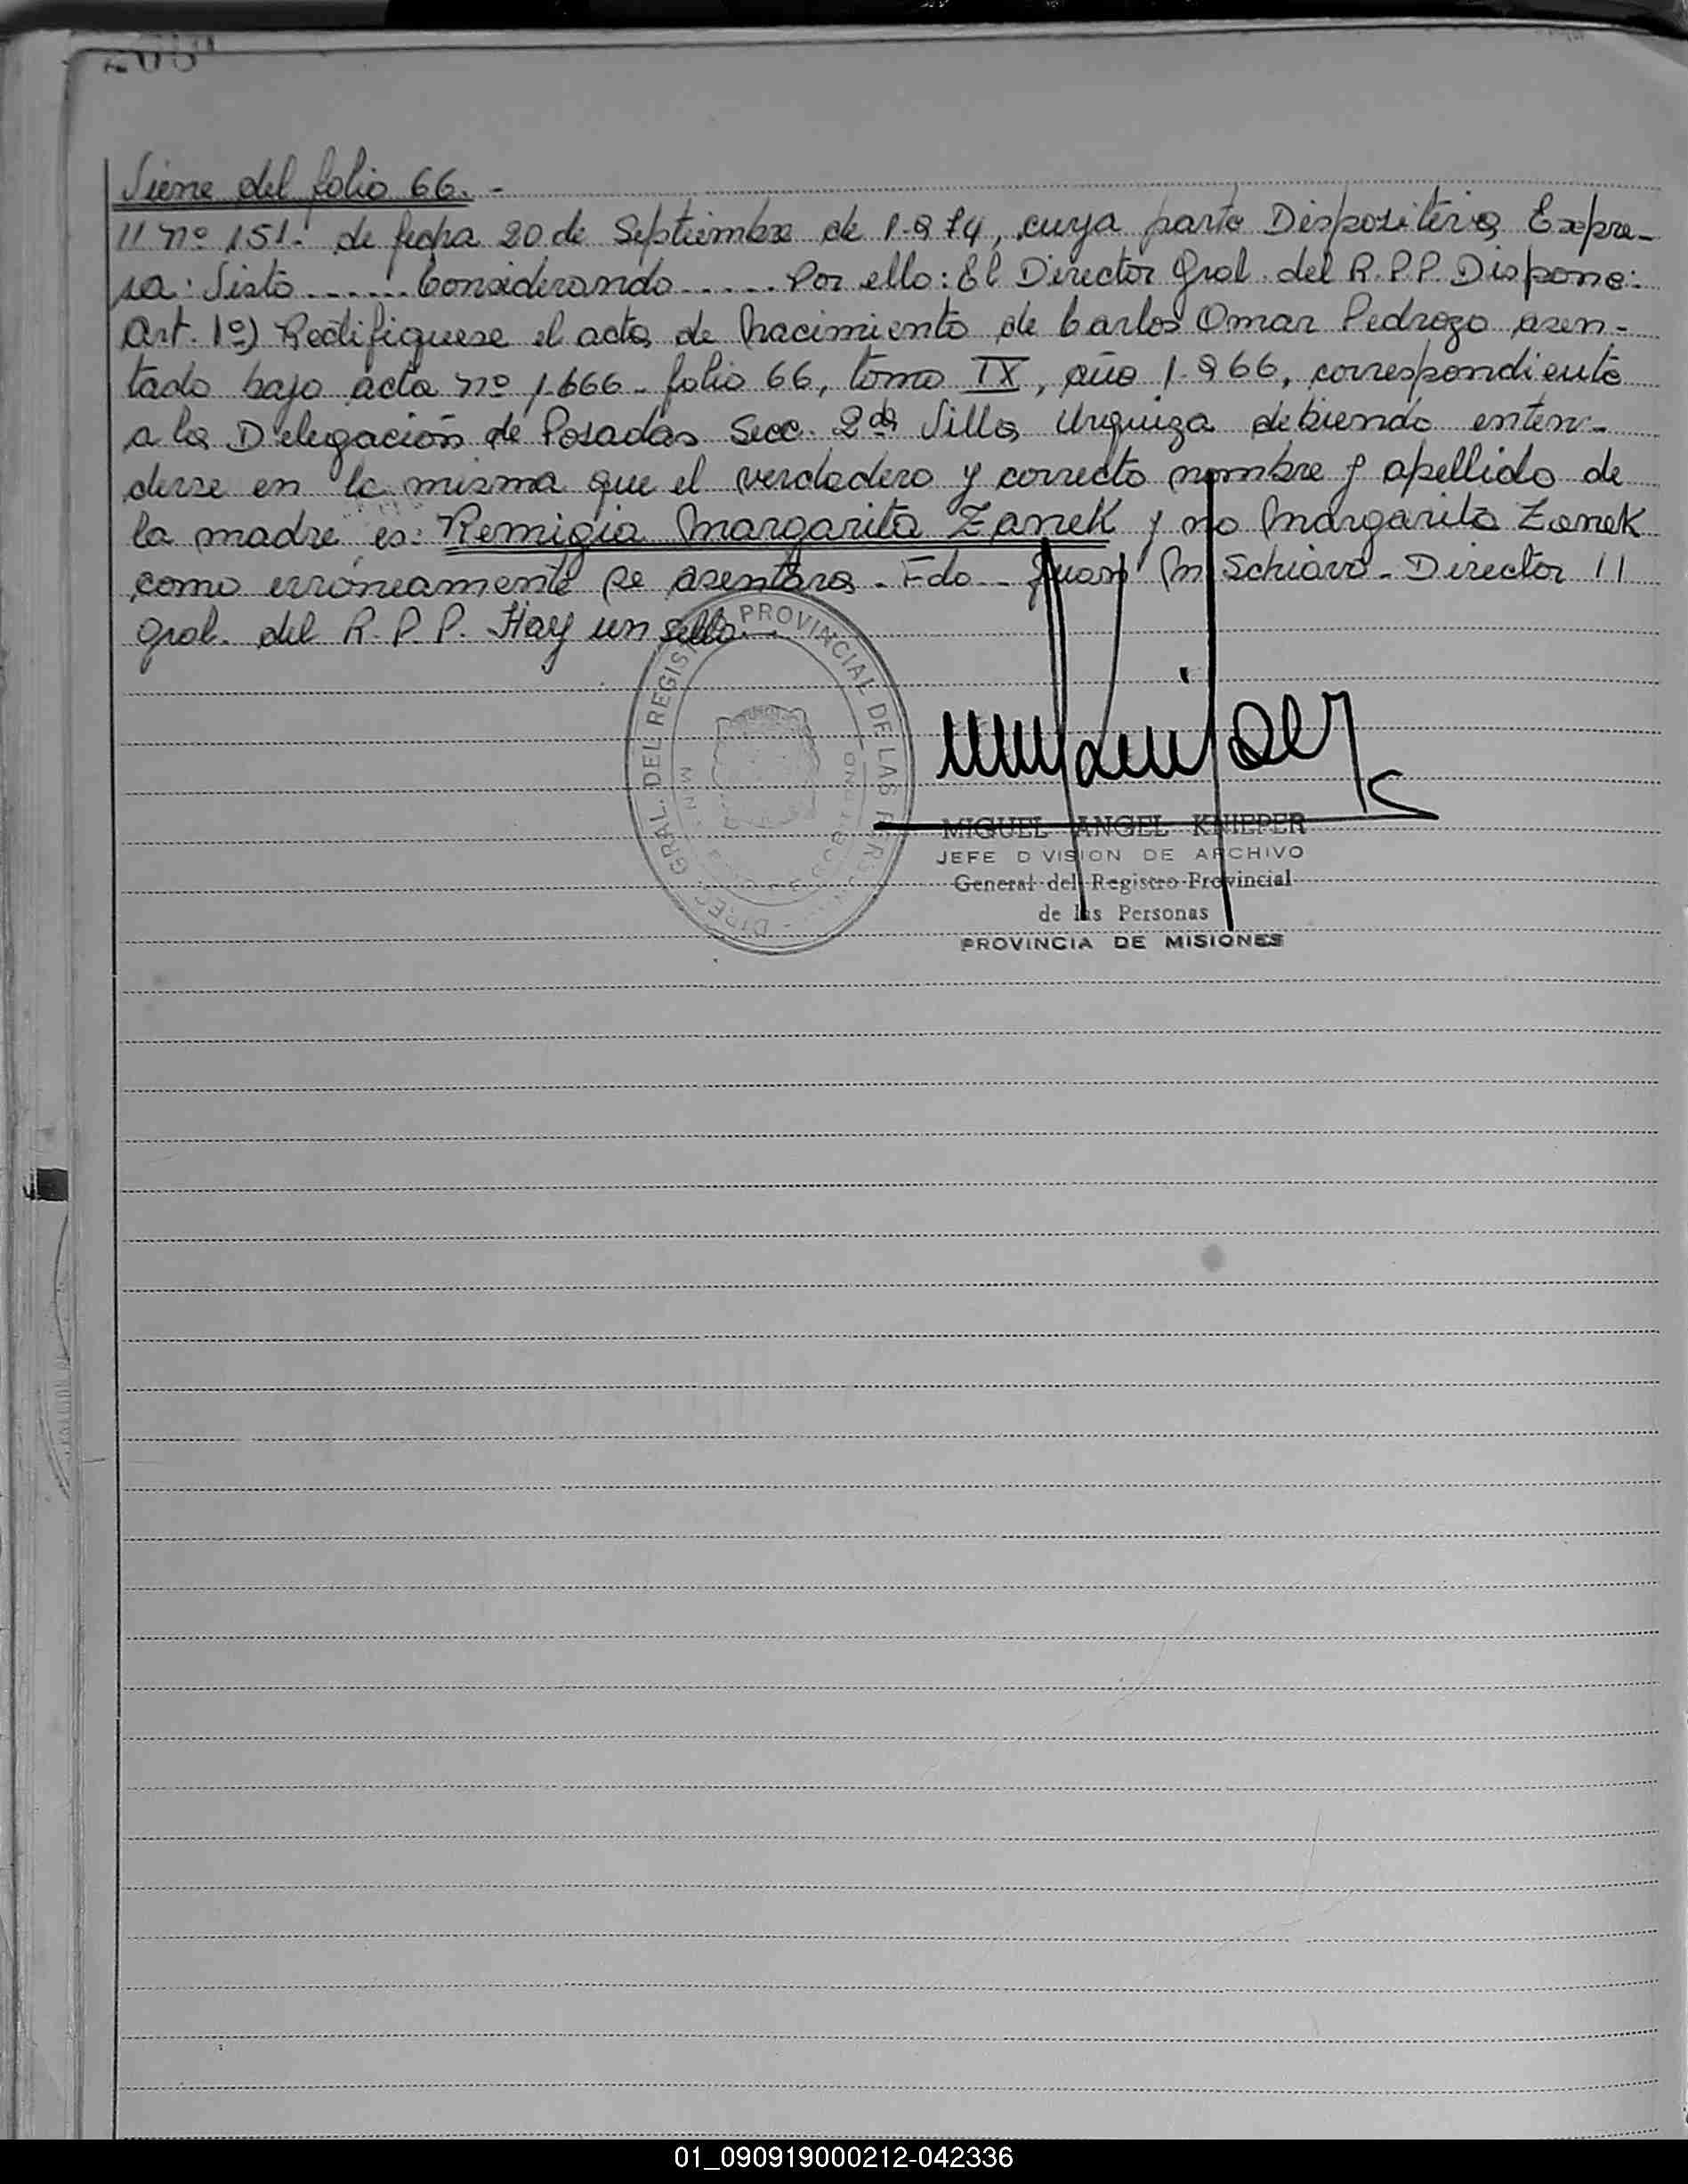 Viene del folio 66. -
// nº 151. de fecha 20 de Septiembre de 1.974, cuya parte Dispositiva Expre-
sa: Visto ...... Considerando ..... Por ello: El Director Gral. del R.P.P. Dispone:
Art. 1º) Rectifiquese el acta de Nacimiento de Carlos Omar Pedrozo asen-
tado bajo acta nº 1.666 - folio 66, tomo IX, año 1.966, correspondiente
a la Delegación de Posadas Secc. 2da Villa Urquiza debiendo enten-
derse en la misma que el verdadero y correcto nombre y apellido de
la madre es: Remigia Margarita Zanek y no Margarita Zanek
como erróneamente se asentara. - Fdo - Juan M Schiavo - Director //
Gral. del R. P. P. Hay un sello. -
PROVINCIAL DE LAS
GRAL. DEL
MIGUEL ANGEL KNIEPER
JEFE DIVISION DE ARCHIVO
General del Registro Provincial
de las Personas
PROVINCIA DE MISIONES
01_090919000212-042336